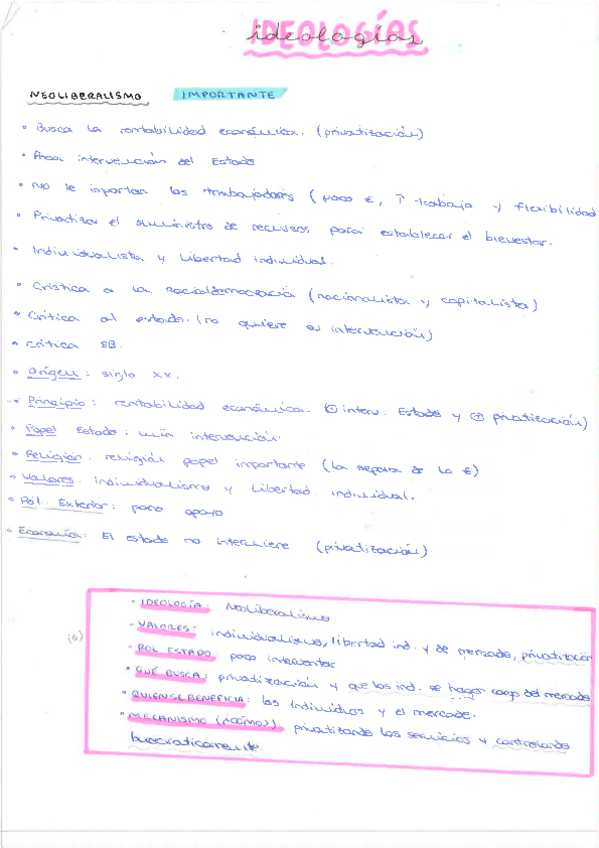 IDEOLOGÍAS
ideologías
NEOLIBERALISMO IMPORTANTE
• Busca la rentabilidad económica. (privatización)
• Poca intervención del Estado
• No le importan los trabajadores (poco €, ↑ trabajo y flexibilidad
• Privatizar el suministro de recursos para establecer el bienestar.
• Individualista y libertad individual.
• Crística a la socialdemocracia (nacionalista y capitalista)
• Crítica al estado. (no quiere su intervención)
• Crítica EB.
• Origen: siglo XX.
• Principio: rentabilidad económica. ⊖ interv. Estado y ⊕ privatización)
• Papel Estado: mín intervención.
• Religión: religión papel importante (la separa de lo €)
• Valores: individualismo y libertad individual.
• Pol. Exterior: poco apoyo
• Economía: El estado no interviene (privatización)
• IDEOLOGÍA: Neoliberalismo
(6) • VALORES: individualismo, libertad ind. y de mercado, privatizar
• ROL ESTADO: poco interventor
• QUÉ BUSCA: privatización y que los ind. se hagan cargo del mercado
• QUIENSE BENEFICIA: los Individuos y el mercado.
• MECANISMO (¿CÓMO?): privatizando los servicios y controlando
burocráticamente